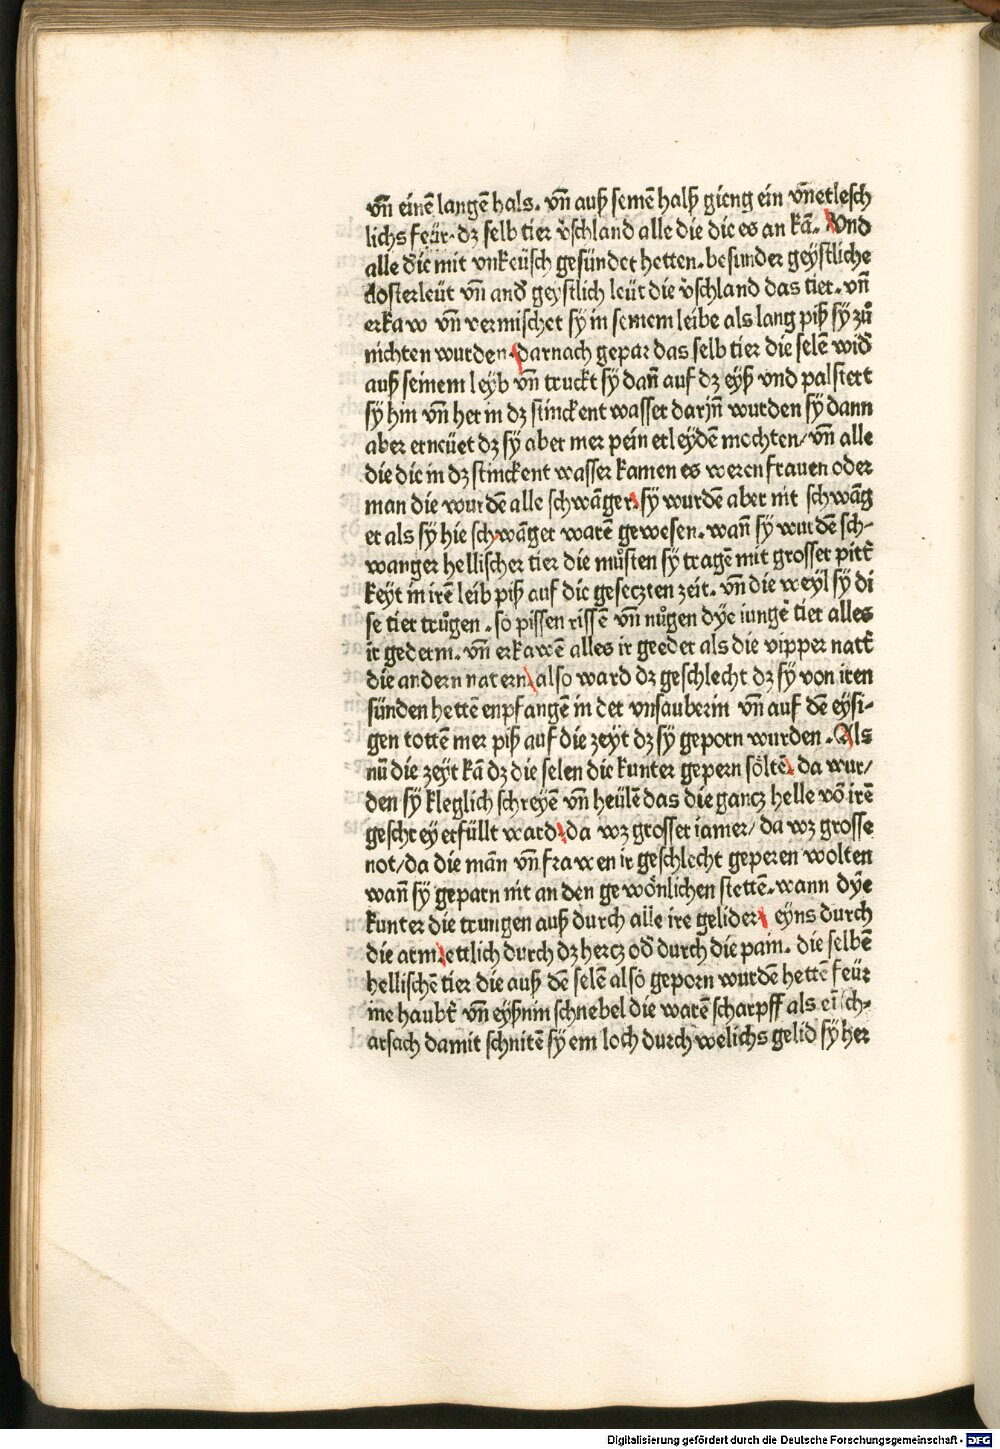 vñ einẽ langẽ hals. vñ auß seinẽ halß gieng ein vñetlesch
lichs feür. dz selb tier ṽschland alle die die es an kã. Vnd
alle die mit vnkeüsch gesündet hetten. besunder geystliche
closterleüt vñ and̃ geystlich leüt die ṽschland das tier. vñ
erkaw vñ vermischet sy in seinem leibe als lang piß sy zů
nichten wurden. darnach gepar das selb tier die selẽ wid̃
auß seinem leyb vñ truckt sy dañ auf dz eyß vnd palsiert
sy hin vñ her in dz stinckent wasser darjñ wurden sy dann
aber erneüet dz sy aber mer pein erleydẽ mochten/ vñ alle
die die in dz stinckent wasser kamen es weren frauen oder
man die wurdẽ alle schwãger. sy wurdẽ aber nit schwãg
er als sy hie schwãger warẽ gewesen. wañ sy wurdẽ sch-
wanger hellischer tier die můsten sy tragẽ mit grosser pitt̃
keyt in irẽ leib piß auf die gesetzten zeit. vñ die weyl sy di
se tier trůgen. so pissen rissẽ vñ nůgen dye iungẽ tier alles
ir gederm. vñ erkawẽ alles ir geeder als die vipper natt̃
die andern natern. also ward dz geschlecht dz sy von iren
sünden hettẽ enpfangẽ in der vnsauberin vñ auf dẽ eysi-
gen tottẽ mer piß auf die zeyt dz sy geporn wurden. Als
nũ die zeyt kã dz die selen die kunter gepern söltẽ. da wur/
den sy kleglich schreyẽ vñ heülẽ das die gancz helle võ irẽ
geschrey erfüllt ward. da wz grosser iamer/ da wz grosse
not/ da die mãn vñ frawen ir geschlecht geperen wolten
wañ sy geparn nit an den gewönlichen stettẽ. wann dye
kunter die trungen auß durch alle ire gelider. eyns durch
die arm. ettlich durch dz hercz od̃ durch die pain. die selbẽ
hellischẽ tier die auß dẽ selẽ also geporn wurdẽ hettẽ feür
ine haubt̃ vñ eyßnin schnebel die warẽ scharpff als eĩ sch-
arsach damit schnitẽ sy em loch durch welichs gelid sy her
Digitalisierung gefördert durch die Deutsche Forschungsgemeinschaft - DFG